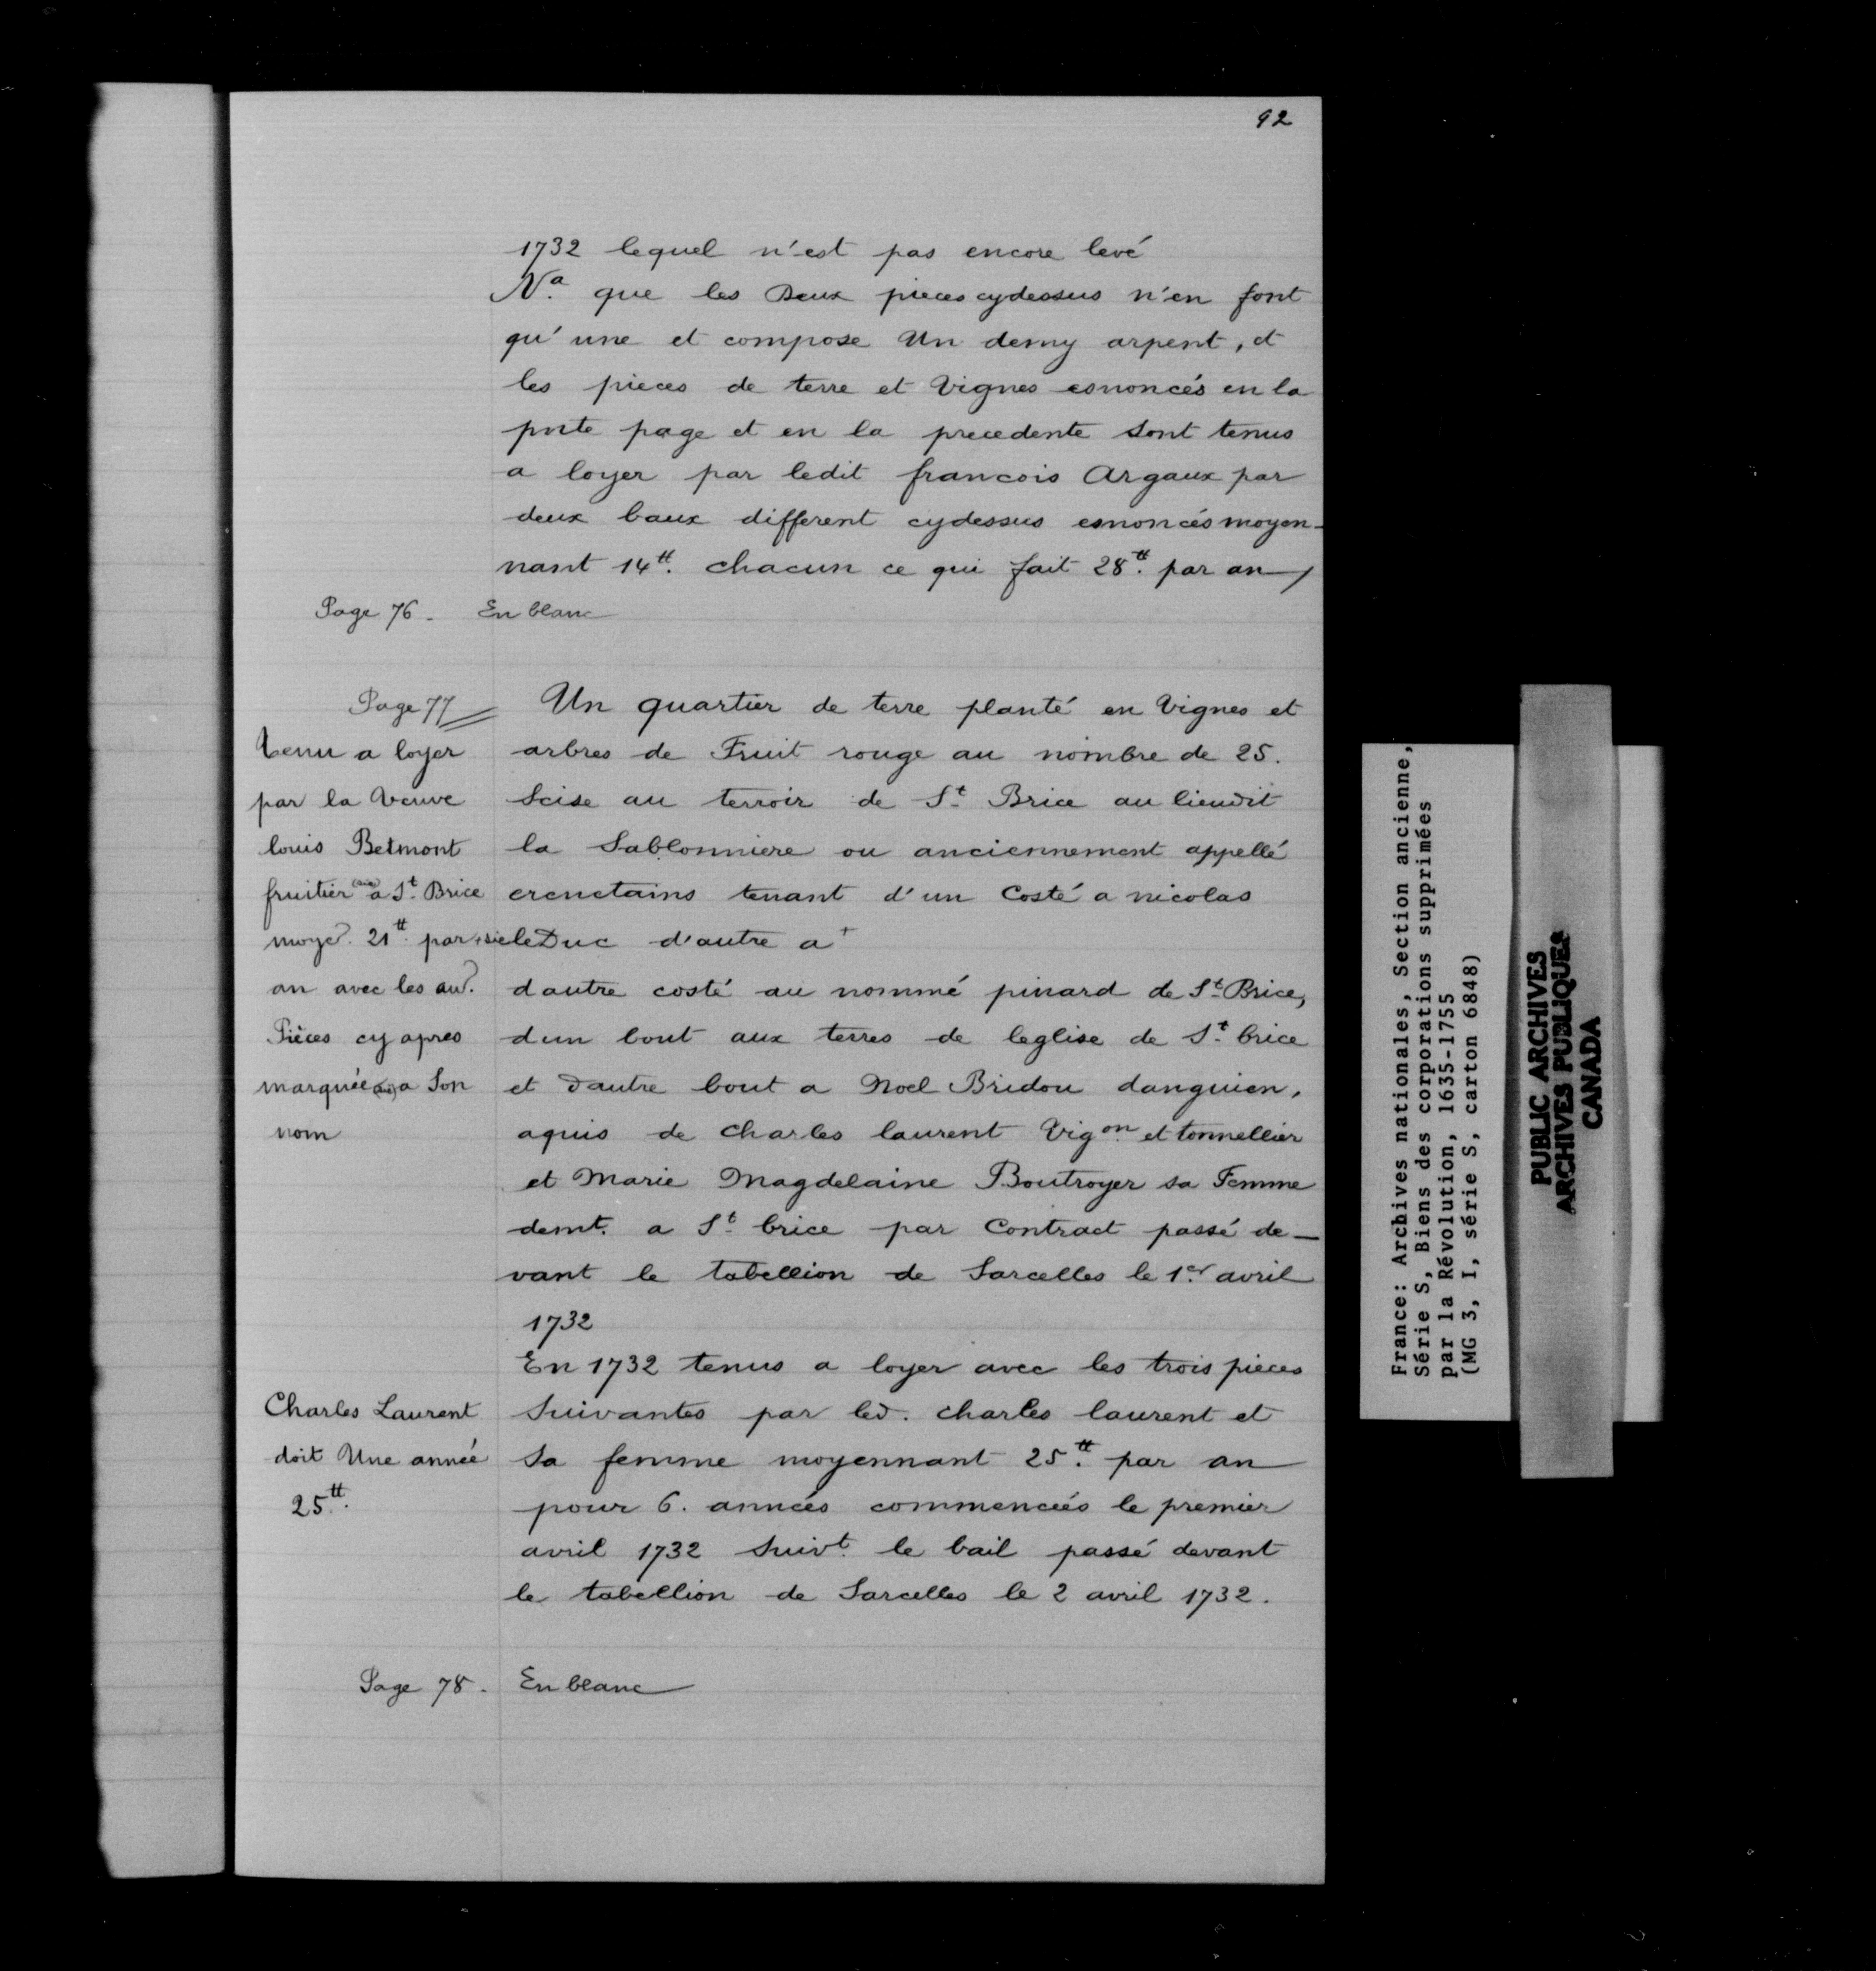 92
1732 lequel n'est pas encore levé
Na. que les Deux pieces cydessus n'en font
qu'une et compose Un demy arpent, et
les pieces de terre et Vignes esnoncés en la
pnte page et en la precedente sont tenus
a loyer par ledit francois Argaux par
deux baux different cydessus esnoncés moyen-
nant 14tt. chacun ce qui fait 28tt. par an
Page 76. En blanc
Page 77
Tenu a loyer
par la Veuve
louis Betmont
fruitier (sic) a St. Brice
moyd. 21tt. par
an avec les au.
Pièces cy apres
marquée (sic) a Son
nom
Un quartier de terre planté en Vignes et
arbres de Fruit rouge au nombre de 25.
Scise au terroir de St. Brice au lieudit
la Sablonniere ou anciennement appellé
crenetains tenant d'un Costé a nicolas
+ sic le Duc d'autre a +
dautre costé au nommé pinard de St. Brice,
dun bout aux terres de leglise de St. brice
et dautre bout a Noel Bridou danguien,
aquis de Charles laurent Vigon. et tonnellier
et Marie Magdelaine Boutroyer sa Femme
demt. a St. brice par Contract passé de-
vant le tabellion de Sarcelles le 1er. avril
1732
En 1732 tenus a loyer avec les trois pieces
Suivantes par led. charles laurent et
Sa femme moyennant 25tt. par an
pour 6. années commenciés le premier
avril 1732 Suivt. le bail passé devant
le tabellion de Sarcelles le 2 avril 1732.
Charles Laurent
doit Une année
25tt.
Page 78. En blanc
France: Archives nationales, Section ancienne,
Série S, Biens des corporations supprimées
par la Révolution, 1635-1755
(MG 3, I, série S, carton 6848)
PUBLIC ARCHIVES
ARCHIVES PUBLIQUES
CANADA